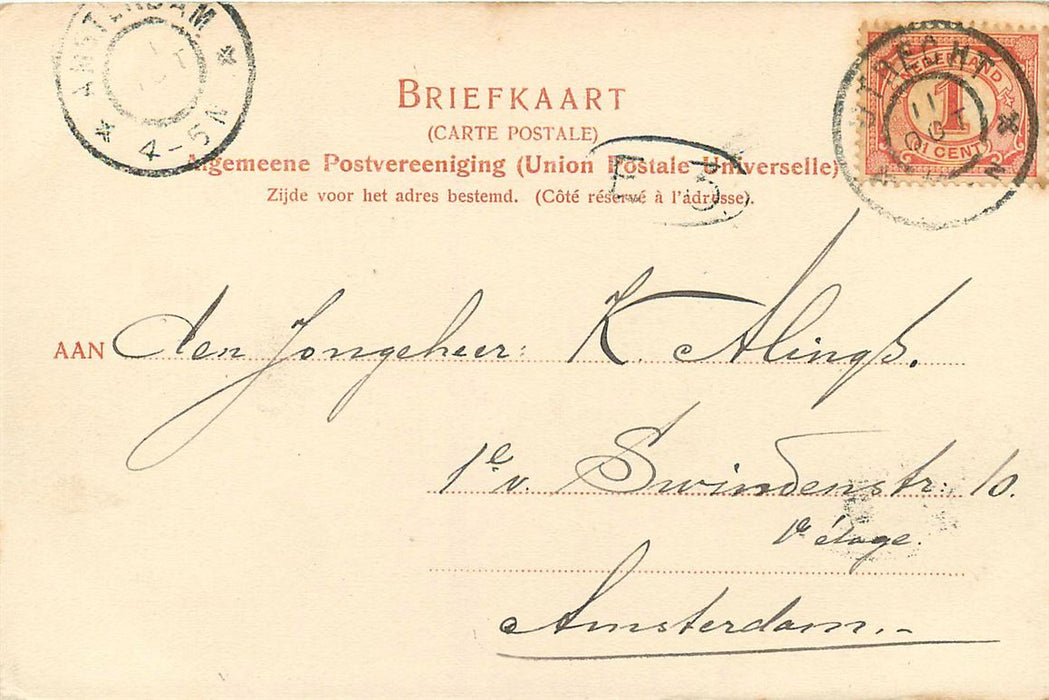 AMSTERDAM
4-5N
BRIEFKAART
(CARTE POSTALE)
Algemeene Postvereeniging (Union Postale Universelle)
Zijde voor het adres bestemd. (Côté réservé à l'adresse).
UTRECHT
NEDERLAND
1
(1 CENT)
AAN den Jongeheer: K. Alings.
1e v. Swindenstr: 10.
1e étage.
Amsterdam.-